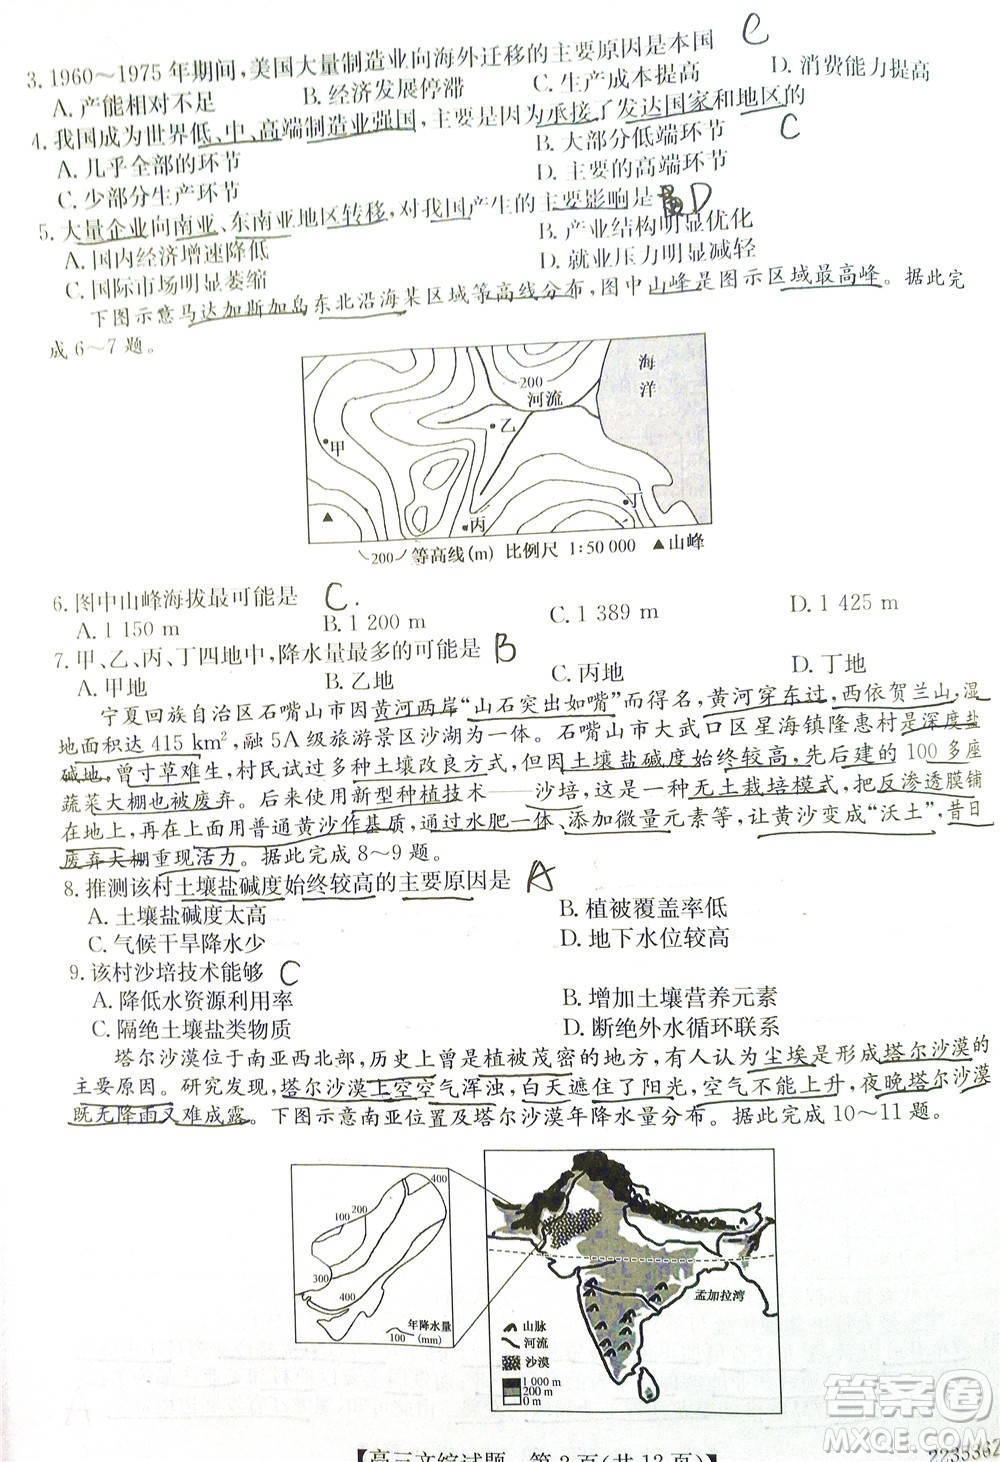 3. 1960～1975年期间,美国大量制造业向海外迁移的主要原因是本国 C
A. 产能相对不足 B. 经济发展停滞 C. 生产成本提高 D. 消费能力提高
4. 我国成为世界低、中、高端制造业强国,主要是因为承接了发达国家和地区的 C
A. 几乎全部的环节 B. 大部分低端环节
C. 少部分生产环节 D. 主要的高端环节
5. 大量企业向南亚、东南亚地区转移,对我国产生的主要影响是 D
A. 国内经济增速降低 B. 产业结构明显优化
C. 国际市场明显萎缩 D. 就业压力明显减轻
下图示意马达加斯加岛东北沿海某区域等高线分布,图中山峰是图示区域最高峰。据此完
成6～7题。
海洋
200
河流
乙
甲
丁
丙
200 等高线(m) 比例尺 1:50 000 ▲山峰
6. 图中山峰海拔最可能是 C.
A. 1 150 m B. 1 200 m C. 1 389 m D. 1 425 m
7. 甲、乙、丙、丁四地中,降水量最多的可能是 B
A. 甲地 B. 乙地 C. 丙地 D. 丁地
宁夏回族自治区石嘴山市因黄河两岸“山石突出如嘴”而得名,黄河穿东过,西依贺兰山,湿
地面积达 415 km²,融5A级旅游景区沙湖为一体。石嘴山市大武口区星海镇隆惠村是深度盐
碱地,曾寸草难生,村民试过多种土壤改良方式,但因土壤盐碱度始终较高,先后建的100多座
蔬菜大棚也被废弃。后来使用新型种植技术——沙培,一种无土栽培模式,把反渗透膜铺
在地上,再在上面使用普通黄沙作基质,通过水肥一体、添加微量元素等,让黄沙变成“沃土”,昔日
废弃大棚重现活力。据此完成8～9题。
8. 推测该村土壤盐碱度始终较高的主要原因是 A
A. 土壤盐碱度太高 B. 植被覆盖率低
C. 气候干旱降水少 D. 地下水位较高
9. 该村沙培技术能够 C
A. 降低水资源利用率 B. 增加土壤营养元素
C. 隔绝土壤盐类物质 D. 断绝外水循环联系
塔尔沙漠位于南亚西北部,历史上曾是植被茂密的地方,有人认为尘埃是形成塔尔沙漠的
主要原因。研究发现,塔尔沙漠上空空气浑浊,白天遮住了阳光,空气不能上升,夜晚塔尔沙漠
既无降雨又难成露。下图示意南亚位置及塔尔沙漠年降水量分布。据此完成10～11题。
400
200
100
300
400
年降水量
100 (mm)
孟加拉湾
山脉
河流
沙漠
1 000 m
200 m
0 m
【高三文综试题 第2页(共12页)】
223336Z
答案圈